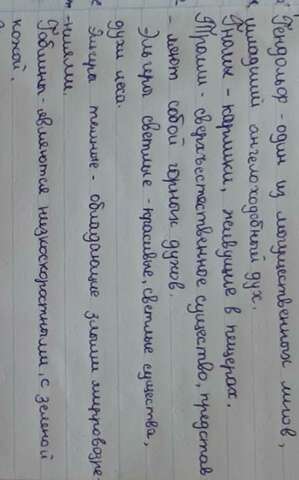 Гендольф - один из могущественных магов,
младший ангелоподобный дух.
Гномы - карлики, живущие в пещерах.
Тролли - сверхъестественное существо, представ
- ляют собой горных духов.
Эльфы светлые - красивые, светлые существа,
духи леса.
Эльфы темные - обладающие злыми
-ниями.
Гоблины - являются низкоскоростными, с зеленой
кожей.